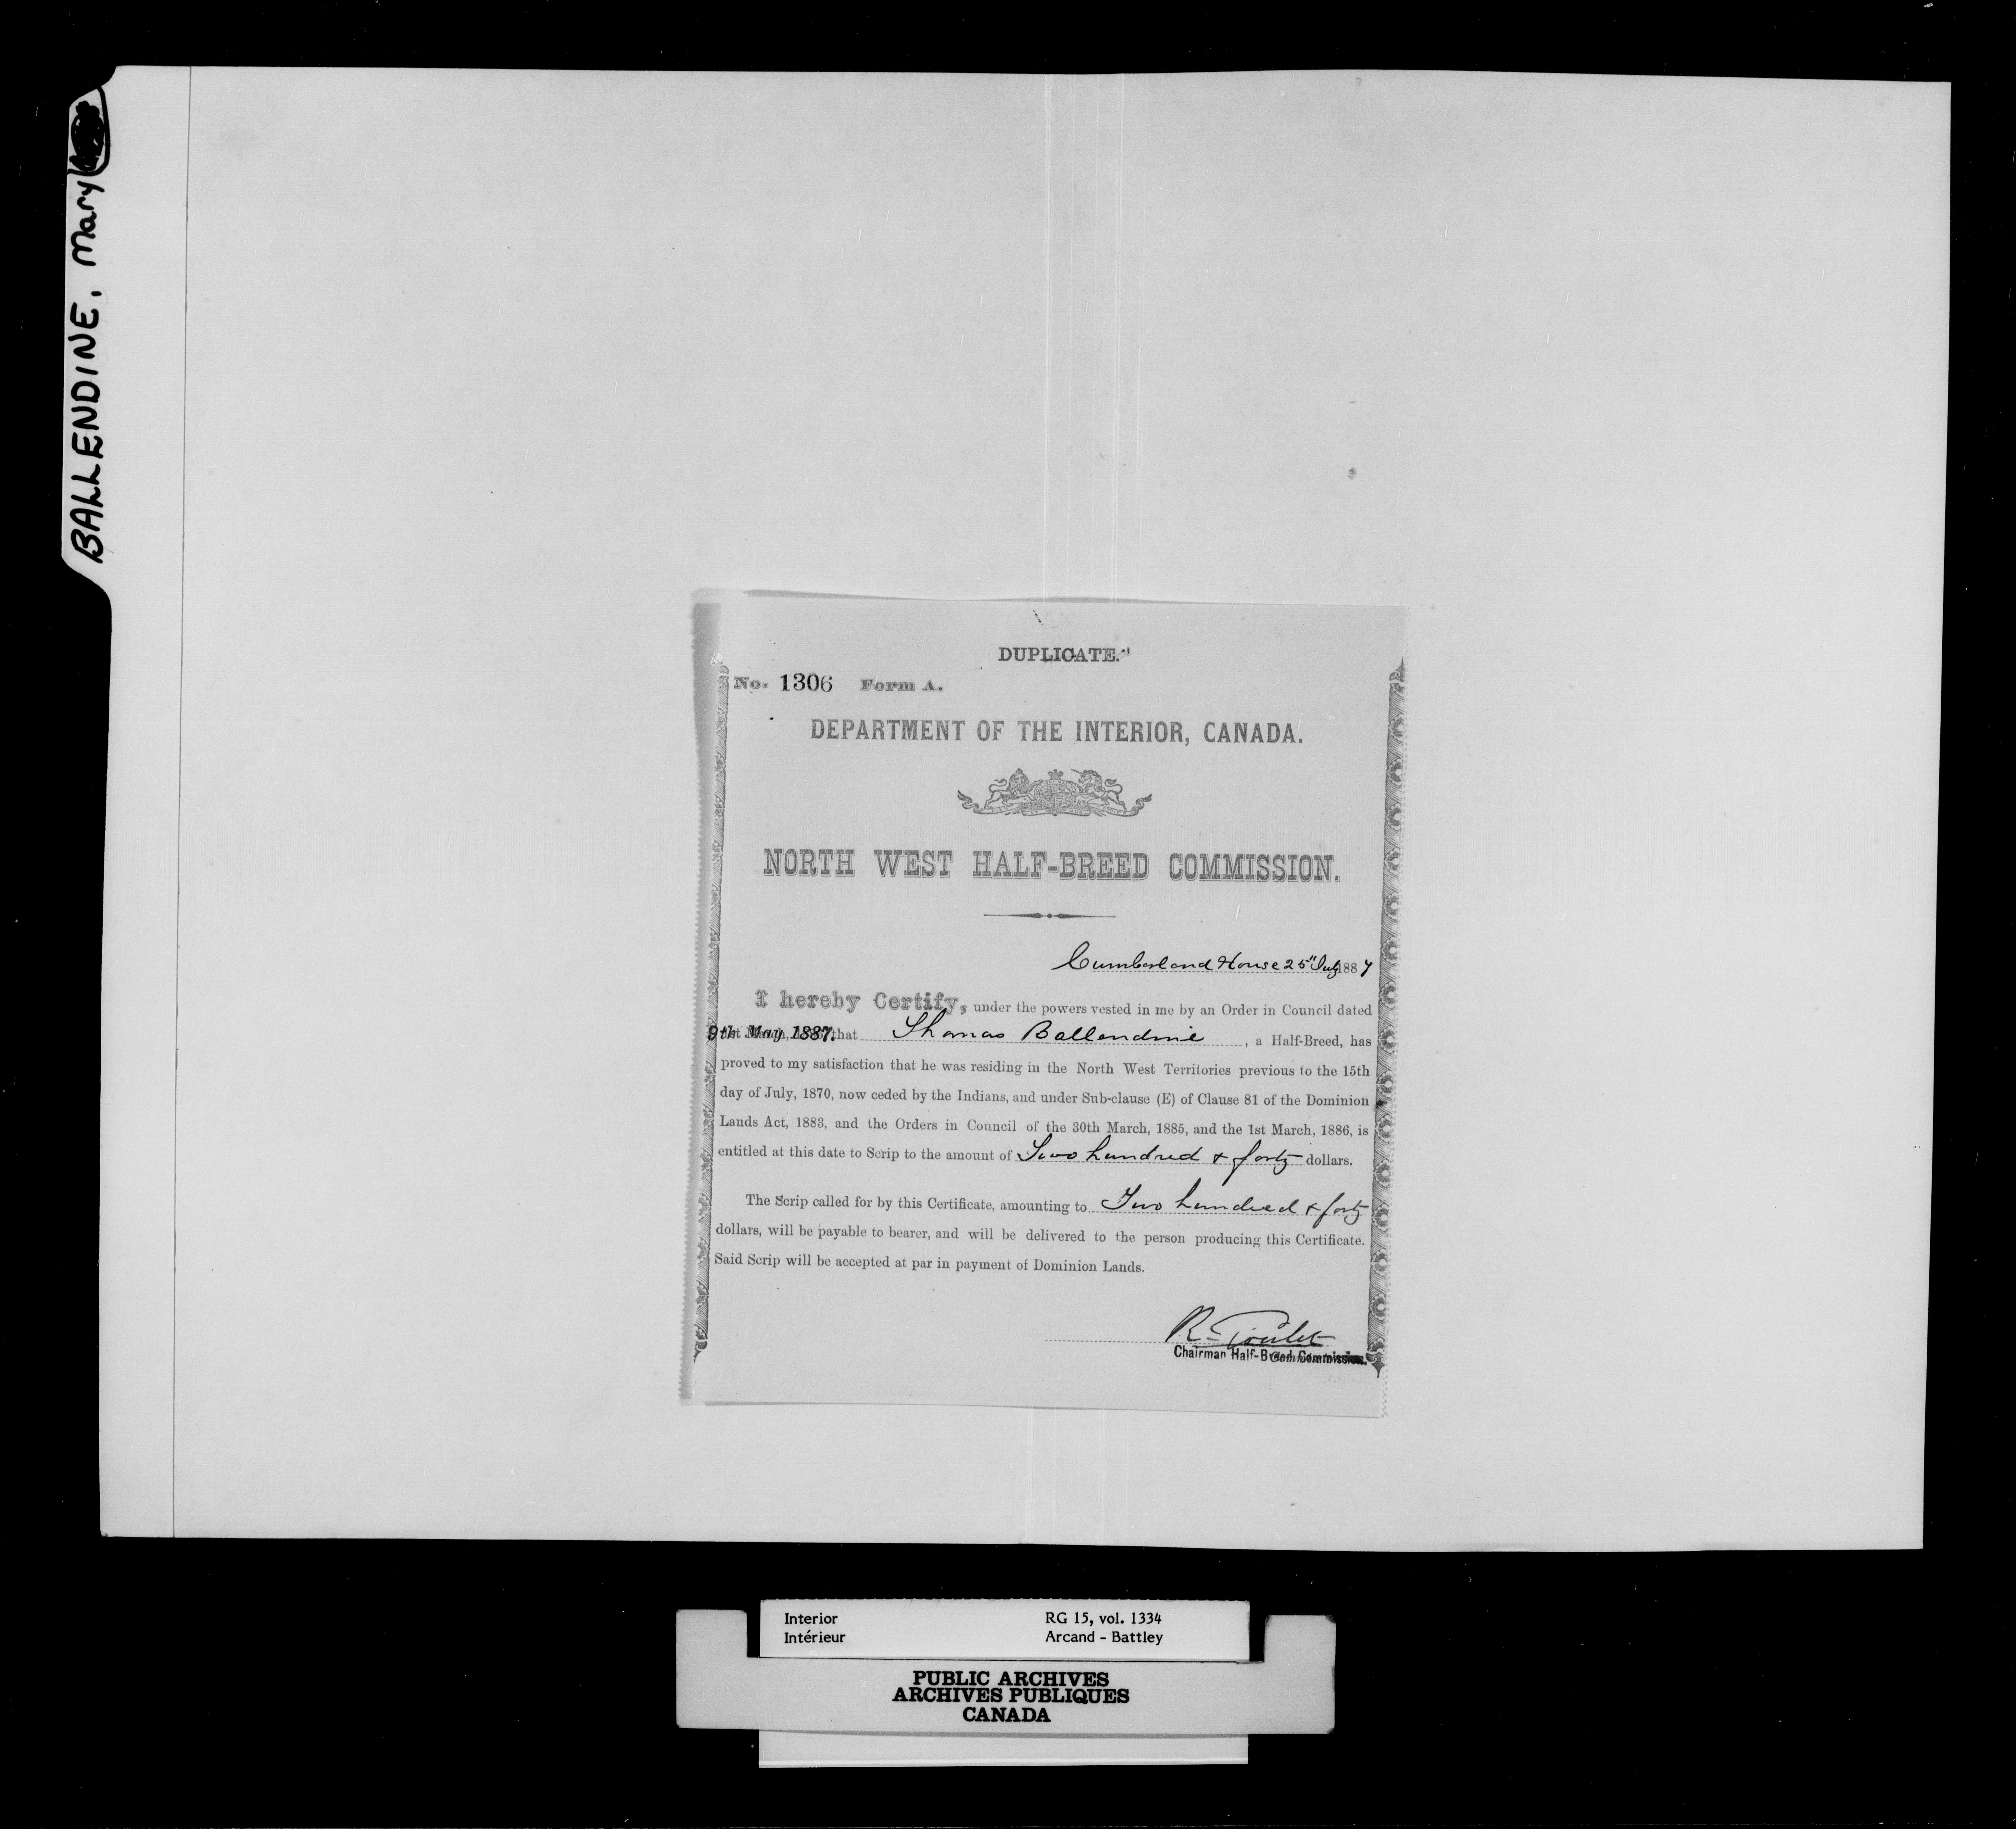 BALLENDINE, Mary
DUPLICATE.
No. 1306 Form A.
DEPARTMENT OF THE INTERIOR, CANADA.
NORTH WEST HALF-BREED COMMISSION.
Cumberland House 25" July 1887
I hereby Certify, under the powers vested in me by an Order in Council dated
9th May, 1887. that Thomas Ballendine, a Half-Breed, has
proved to my satisfaction that he was residing in the North West Territories previous to the 15th
day of July, 1870, now ceded by the Indians, and under Sub-clause (E) of Clause 81 of the Dominion
Lands Act, 1883, and the Orders in Council of the 30th March, 1885, and the 1st March, 1886, is
entitled at this date to Scrip to the amount of Two hundred & forty dollars.
The Scrip called for by this Certificate, amounting to Two hundred & forty
dollars, will be payable to bearer, and will be delivered to the person producing this Certificate.
Said Scrip will be accepted at par in payment of Dominion Lands.
R. Goulet
Chairman Half-Breed Commission.
Interior RG 15, vol. 1334
Intérieur Arcand - Battley
PUBLIC ARCHIVES
ARCHIVES PUBLIQUES
CANADA